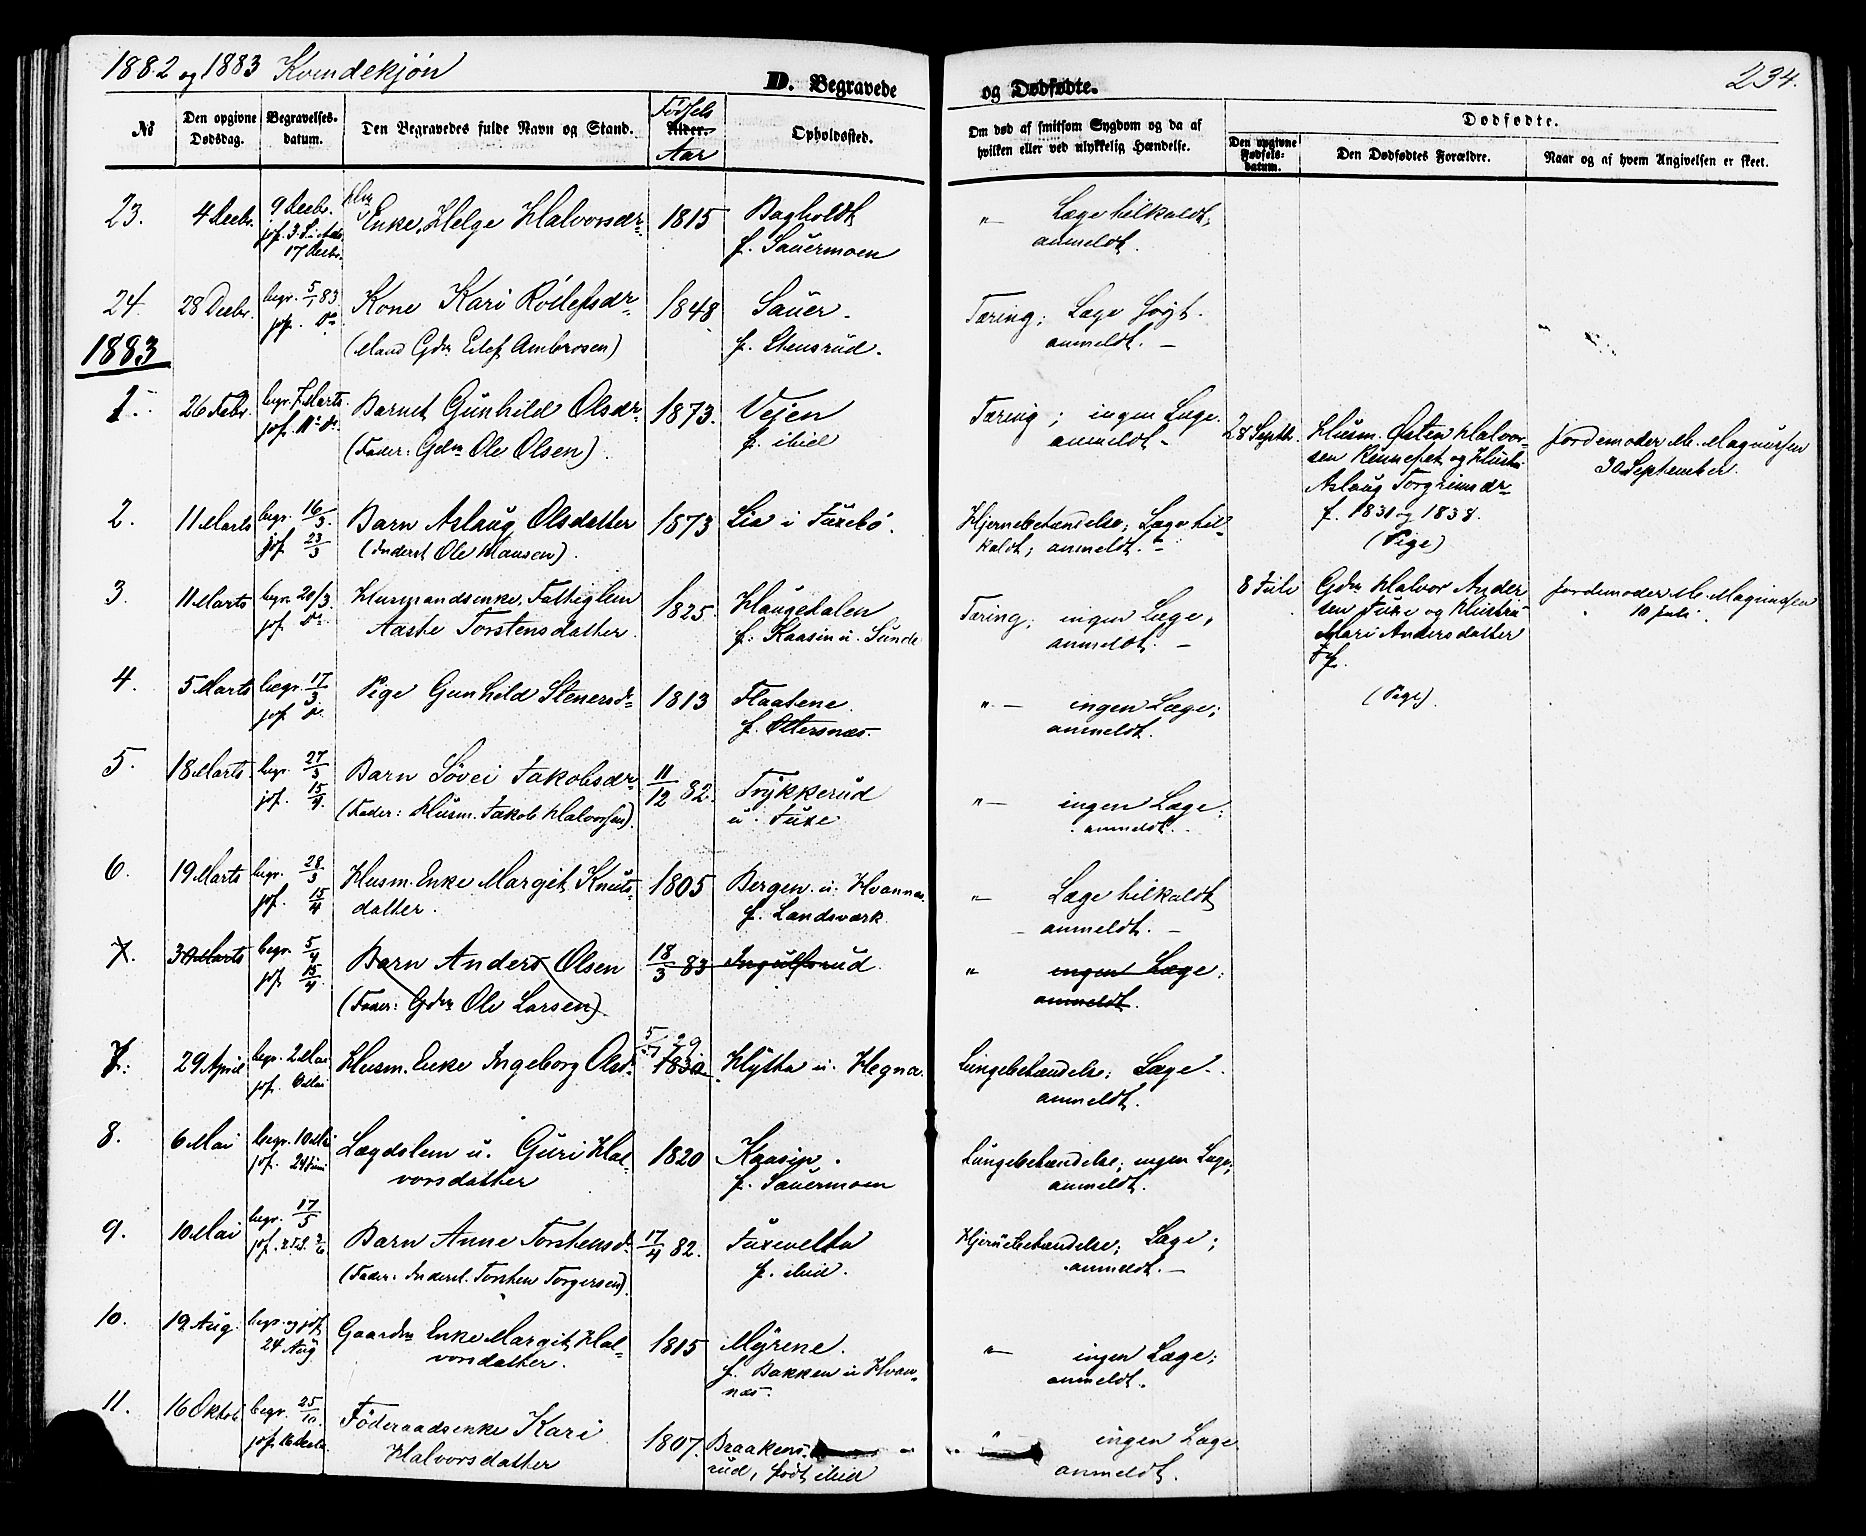 1882 og 1883 Kvindekjøn
D. Begravede og Dødfødte.
234.
No
Den opgivne Dødsdag.
Begravelses-datum.
Den Begravedes fulde Navn og Stand.
Fødsels
Alder.
Aar
Opholdssted.
Om død af smitsom Sygdom og da af hvilken eller ved ulykkelig Hændelse.
Dødfødte.
Den opgivne Fødsels-datum.
Den Dødfødtes Forældre.
Naar og af hvem Angivelsen er skeet.
23. 4 Decbr. 9 Decbr. Enke, Helge Halvorsdr. 1815 Bagholdt " Læge tilkaldt,
17 Decbr. f. Sauermoen anmeldt.
24. 28 Decbr. begr. 5/1 83 Kone Kari Roilefsdr. 1848 Sauer. Tæring; Læge søgt.
jof. Do (Mand Gdr. Eilef Ambrosen) f. Stensrud. anmeldt. –
1883
1. 26 Febr. begr. 7 Marts Barnet Gunhild Olsdr. 1873. Vejen Tæring; ingen Læge.
jof. (Fader: Gdr. Ole Olsen). f. ibid anmeldt –
28 Septbr. Husm. Østen Halvor- Jordemoder M. Magnussen
sen Renneset og Hustru 30 September.
Aslaug Torgrimsdr.
f. 1831 og 1838.
(Pige)
2. 11 Marts begr. 16/3. Barn Aslaug Olsdatter 1873 Lia i Tuxebø. Hjernebetændelse; Læge til-
jof. 23/3 (Inderst Ole Hansen). kaldt; anmeldt.
3. 11 Marts begr. 20/3 Husmandsenke, Fattiglem 1825. Haugedalen Tæring; ingen Læge,
jof. Do Aaste Torstensdatter. f. Kaasin u. Sunde anmeldt. –
8 Juli Gdr. Halvor Ander- Jordemoder M. Magnussen
sen Tuxe og Hustru 10 Juli.
Mari Andersdatter
(Pige).
4. 5 Marts begr. 17/3 Pige Gunhild Stenersdr. 1813 Flaatene. " – ingen Læge;
jof. Do f. Ottersnæs. anmeldt.
5. 18 Marts begr. 27/3 Barn Søvei Jakobsdr. 11/12 82. Trykkerud " – ingen Læge;
jof. 15/4. (Fader: Husm. Jakob Halvorsen). u. Tuxe anmeldt.
6. 19 Marts begr. 28/3 Husm. Enke Margit Knuts- 1805 Bergen u. Hvannæs. " Læge tilkaldt
jof. 15/4 datter. f. Landsværk. anmeldt. –
7. 30 Marts begr. 5/4 Barn Anders Olsen 18/3 83 Ingulfsrud. " ingen Læge;
jof. 15/4. (Fader: Gdr. Ole Larsen). anmeldt.
7. 29 April begr. 2 Mai Husm. Enke Ingeborg Olsdr. 1830 29 Hytta u. Hegna. Lungebetændelse; Læge.
jof. 6 Mai anmeldt.
8. 6 Mai begr. 10 Mai Lægdslem u. Guri Hal- 1820 Kaasin. Lungebetændelse; ingen Læge;
jof. 24 Juni vorsdatter f. Sauermoen anmeldt.
9. 10 Mai begr. 17/5 Barn Anne Torstensdr. 17/4 82. Tuxevelta Hjernebetændelse; Læge;
jof. (Fader: Inderst. Torsten Torgersen). f. ibid. anmeldt. –
10. 19 Aug. begr. og jof. Gaardm. Enke Margit Hal- 1815 Myrene. " ingen Læge;
24 Aug. vorsdatter. f. Bakken u Hvan- anmeldt.
næs.
11. 16 Oktob begr. 25/10. Føderaadsenke Kari 1807. Braakens- " ingen Læge
jof. Halvorsdatter rud, født ibid anmeldt.